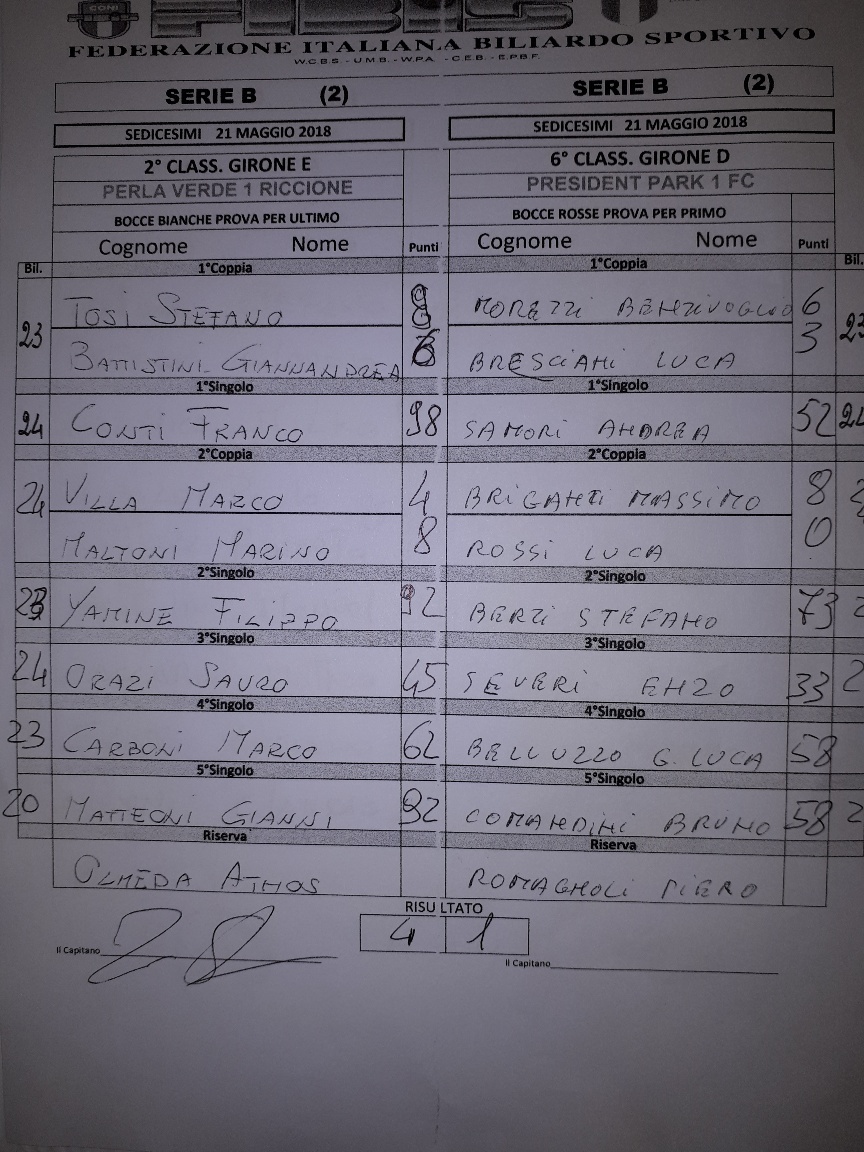 CONI FIBIS
FEDERAZIONE ITALIANA BILIARDO SPORTIVO
W.C.B.S. - U.M.B. - W.P.A. - C.E.B. - E.P.B.F.
SERIE B (2) SERIE B (2)
SEDICESIMI 21 MAGGIO 2018 SEDICESIMI 21 MAGGIO 2018
2° CLASS. GIRONE E 6° CLASS. GIRONE D
PERLA VERDE 1 RICCIONE PRESIDENT PARK 1 FC
BOCCE BIANCHE PROVA PER ULTIMO BOCCE ROSSE PROVA PER PRIMO
Cognome Nome Punti Cognome Nome Punti
Bil. 1°Coppia 1°Coppia Bil.
TOSI STEFANO MOREZZI BENZIVOGLIO 6
23 23
BATTISTINI GIANNANDREA BRESCIANI LUCA 3
1°Singolo 1°Singolo
24 CONTI FRANCO 98 SAMORI ANDREA 52 24
2°Coppia 2°Coppia
24 VILLA MARCO 4 BRIGANTI MASSIMO 8
MALTONI MARINO 8 ROSSI LUCA 0
2°Singolo 2°Singolo
YAMINE FILIPPO 92 BERZI STEFANO 73
3°Singolo 3°Singolo
24 ORAZI SAURO 45 SEVERI ENZO 33
4°Singolo 4°Singolo
23 CARBONI MARCO 62 BELLUZZO G. LUCA 58
5°Singolo 5°Singolo
20 MATTEONI GIANNI 92 COMANDINI BRUNO 58
Riserva Riserva
OLMEDA ATHOS ROMAGNOLI PIERO
RISULTATO
4 1
Il Capitano Il Capitano